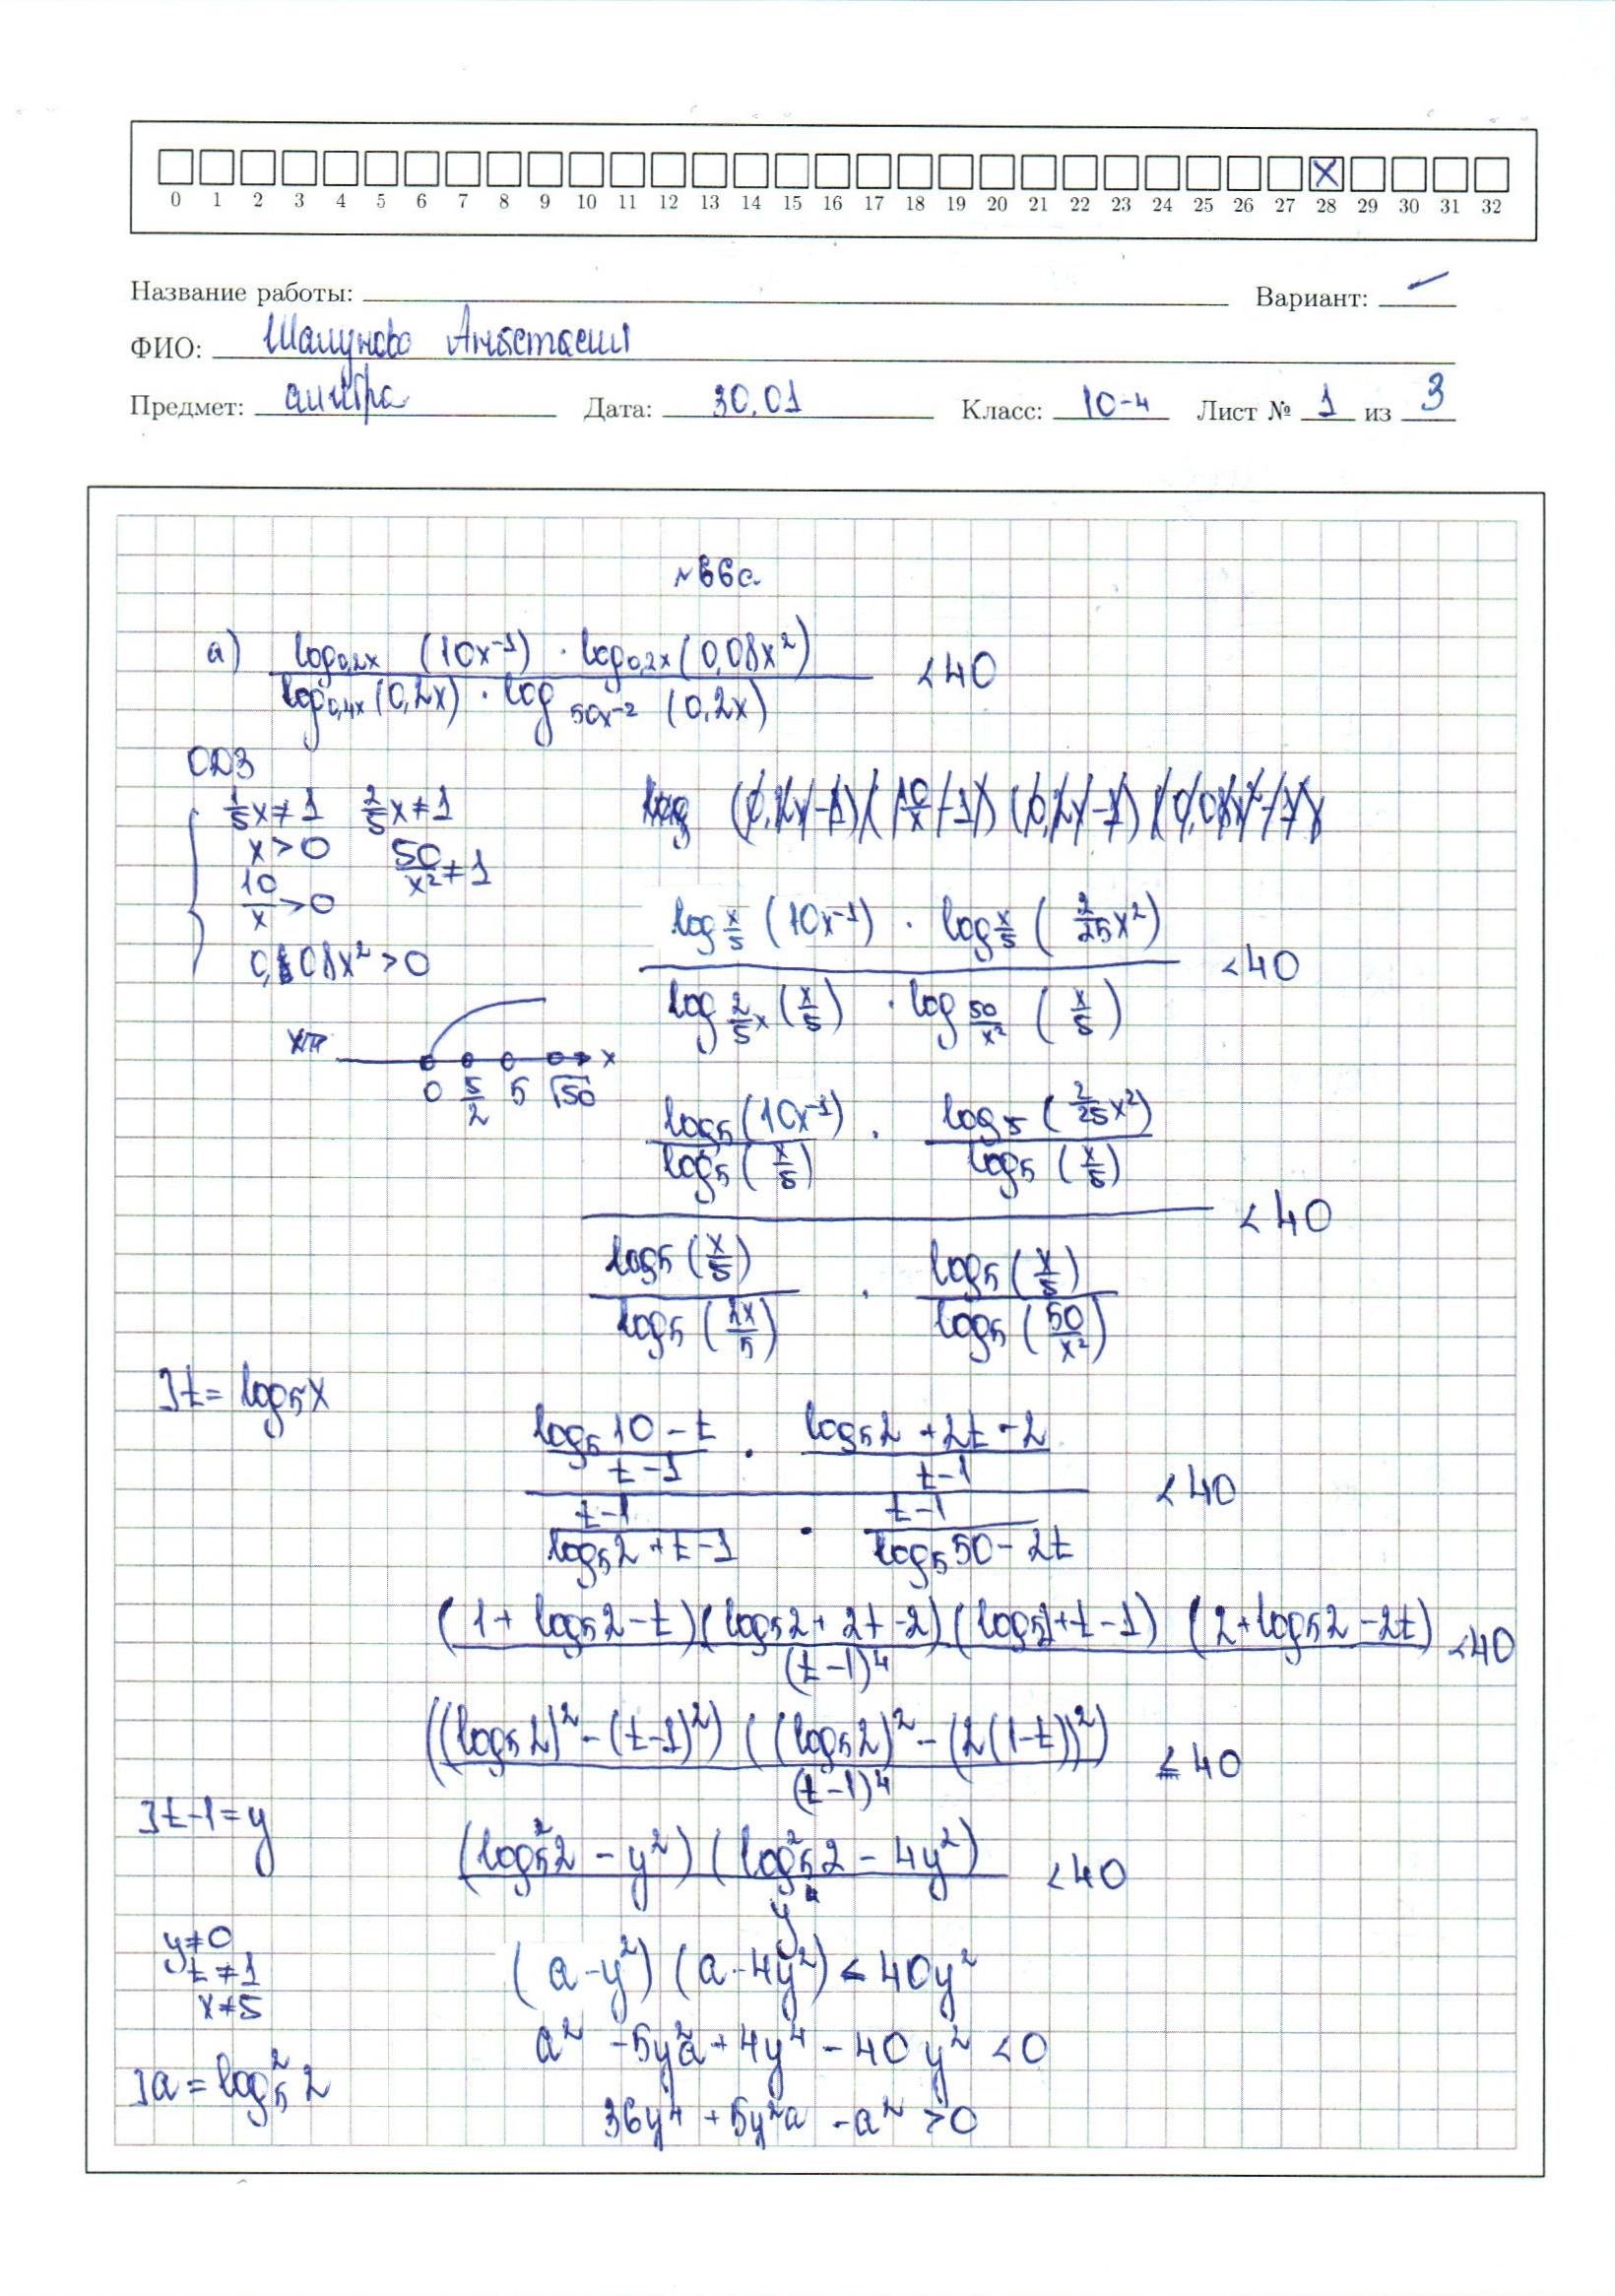 0 1 2 3 4 5 6 7 8 9 10 11 12 13 14 15 16 17 18 19 20 21 22 23 24 25 26 27 28 29 30 31 32
Название работы: Вариант: —
ФИО: Шалунова Анастасия
Предмет: алгебра Дата: 30.01 Класс: 10-4 Лист № 1 из 3
№66а
а) (log_{0,2x} (10x^{-1}) · log_{0,2x} (0,08x²)) / (log_{0,4x} (0,2x) · log_{50x^{-2}} (0,2x)) < 40
ОДЗ
1/5 x ≠ 1   2/5 x ≠ 1
x > 0   50/x² ≠ 1
10/x > 0
0,08x² > 0
0   5/2   5   √50   x
(log_{x/5} (10x^{-1}) · log_{x/5} (2/25 x²)) / (log_{2/5 x} (x/5) · log_{50/x²} (x/5)) < 40
(log₅(10x^{-1}) / log₅(x/5) · log₅(2/25 x²) / log₅(x/5)) / (log₅(x/5) / log₅(2x/5) · log₅(x/5) / log₅(50/x²)) < 40
] t = log₅x
((log₅10 - t)/(t-1) · (log₅2 + 2t - 2)/(t-1)) / ((t-1)/(log₅2 + t - 1) · (t-1)/(log₅50 - 2t)) < 40
(1 + log₅2 - t)(log₅2 + 2t - 2)(log₅2 + t - 1)(2 + log₅2 - 2t) / (t-1)⁴ < 40
((log₅2)² - (t-1)²)((log₅2)² - (2(1-t))²) / (t-1)⁴ < 40
] t-1 = y
(log₅²2 - y²)(log₅²2 - 4y²) / y⁴ < 40
y ≠ 0
t ≠ 1
x ≠ 5
(a - y²)(a - 4y²) < 40y²
a² - 5y²a + 4y⁴ - 40y² < 0
] a = log₅²2
36y⁴ + 5y²a - a² > 0